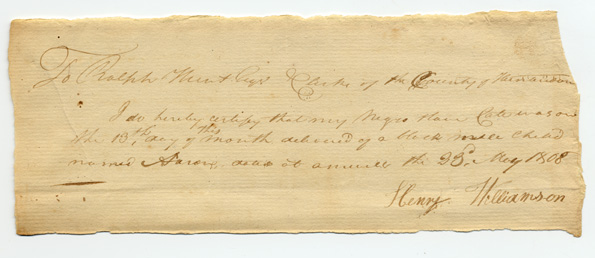 To Ralph Hunt Esqr Clerke of the County of Hunterdon
I do hereby certify that my Negro Slave Cate was on
the 13th day of this month delivered of a black male Child
named Aaron, at the 23d May 1808
Henry Williamson